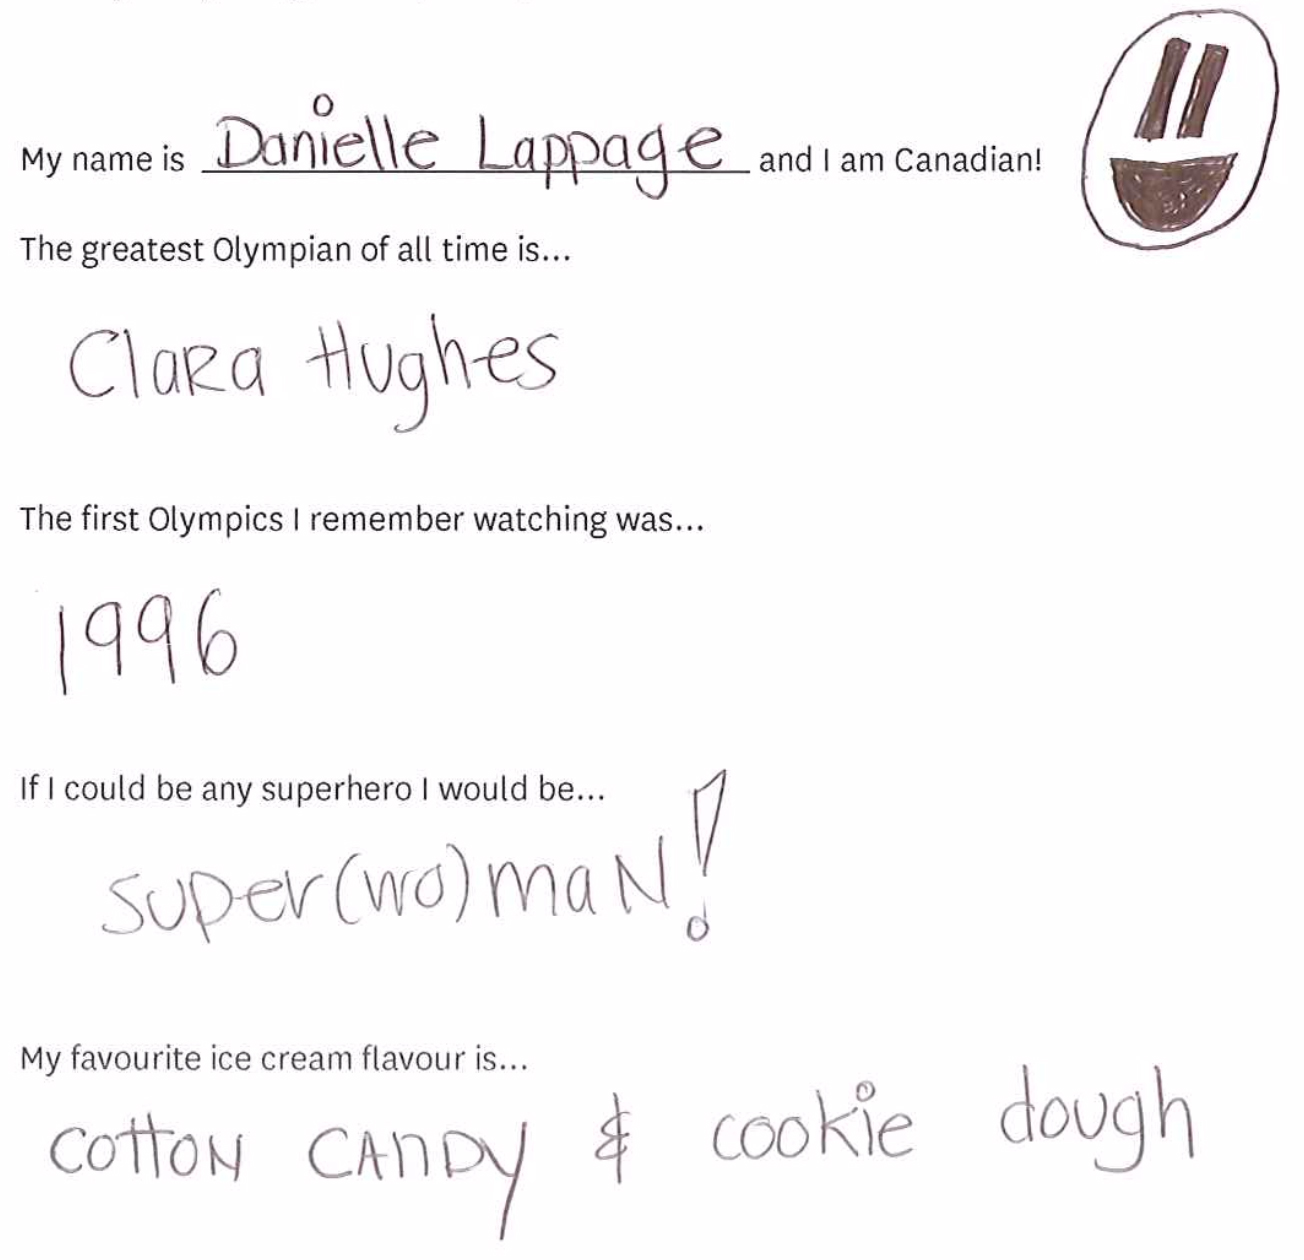 My name is Danielle Lappage and I am Canadian!
The greatest Olympian of all time is...
Clara Hughes
The first Olympics I remember watching was...
1996
If I could be any superhero I would be...
super(wo)maN!
My favourite ice cream flavour is...
cottoN CANDy & cookie dough